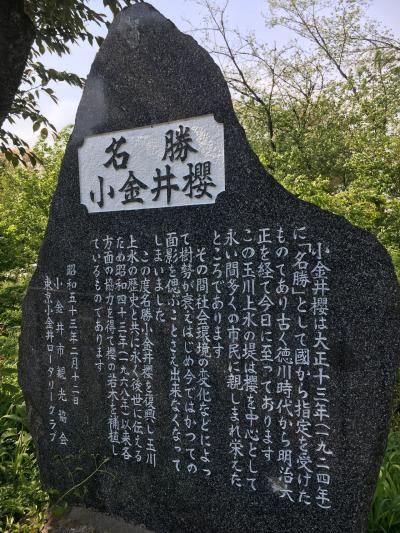 名勝
小金井櫻
小金井櫻は大正十三年(一九二四年)
に「名勝」として國から指定を受けた
ものであり古く徳川時代から明治大
正を経て今日に至っております
この玉川上水の堤は櫻を中心として
永い間多くの市民に親しまれ栄えた
ところであります
その間社会環境の変化などによっ
て樹勢が衰えはじめ今ではかつての
面影を偲ぶことさえ出来なくなって
しまいました
この度名勝小金井櫻を復興し玉川
上水の歴史と共に永く後世に伝える
ため昭和四十三年(一九六八年)以来各
方面の協力を得て櫻の若木を補植し
ているものであります
昭和五十三年二月十二日
小金井市観光協会
東京小金井ロータリークラブ